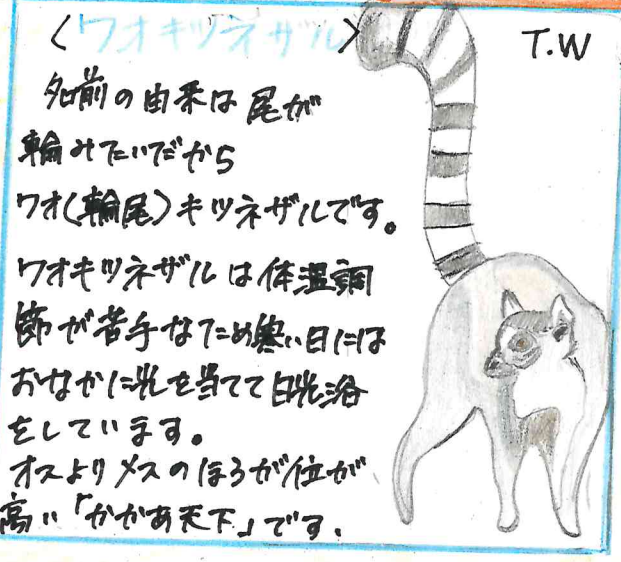 〈ワオキツネザル〉
T.W
名前の由来は尾が
輪みたいだから
ワオ(輪尾)キツネザルです。
ワオキツネザルは体温調
節が苦手なため寒い日には
おなかに光を当てて日光浴
をしています。
オスよりメスのほうが位が
高い「かかあ天下」です.